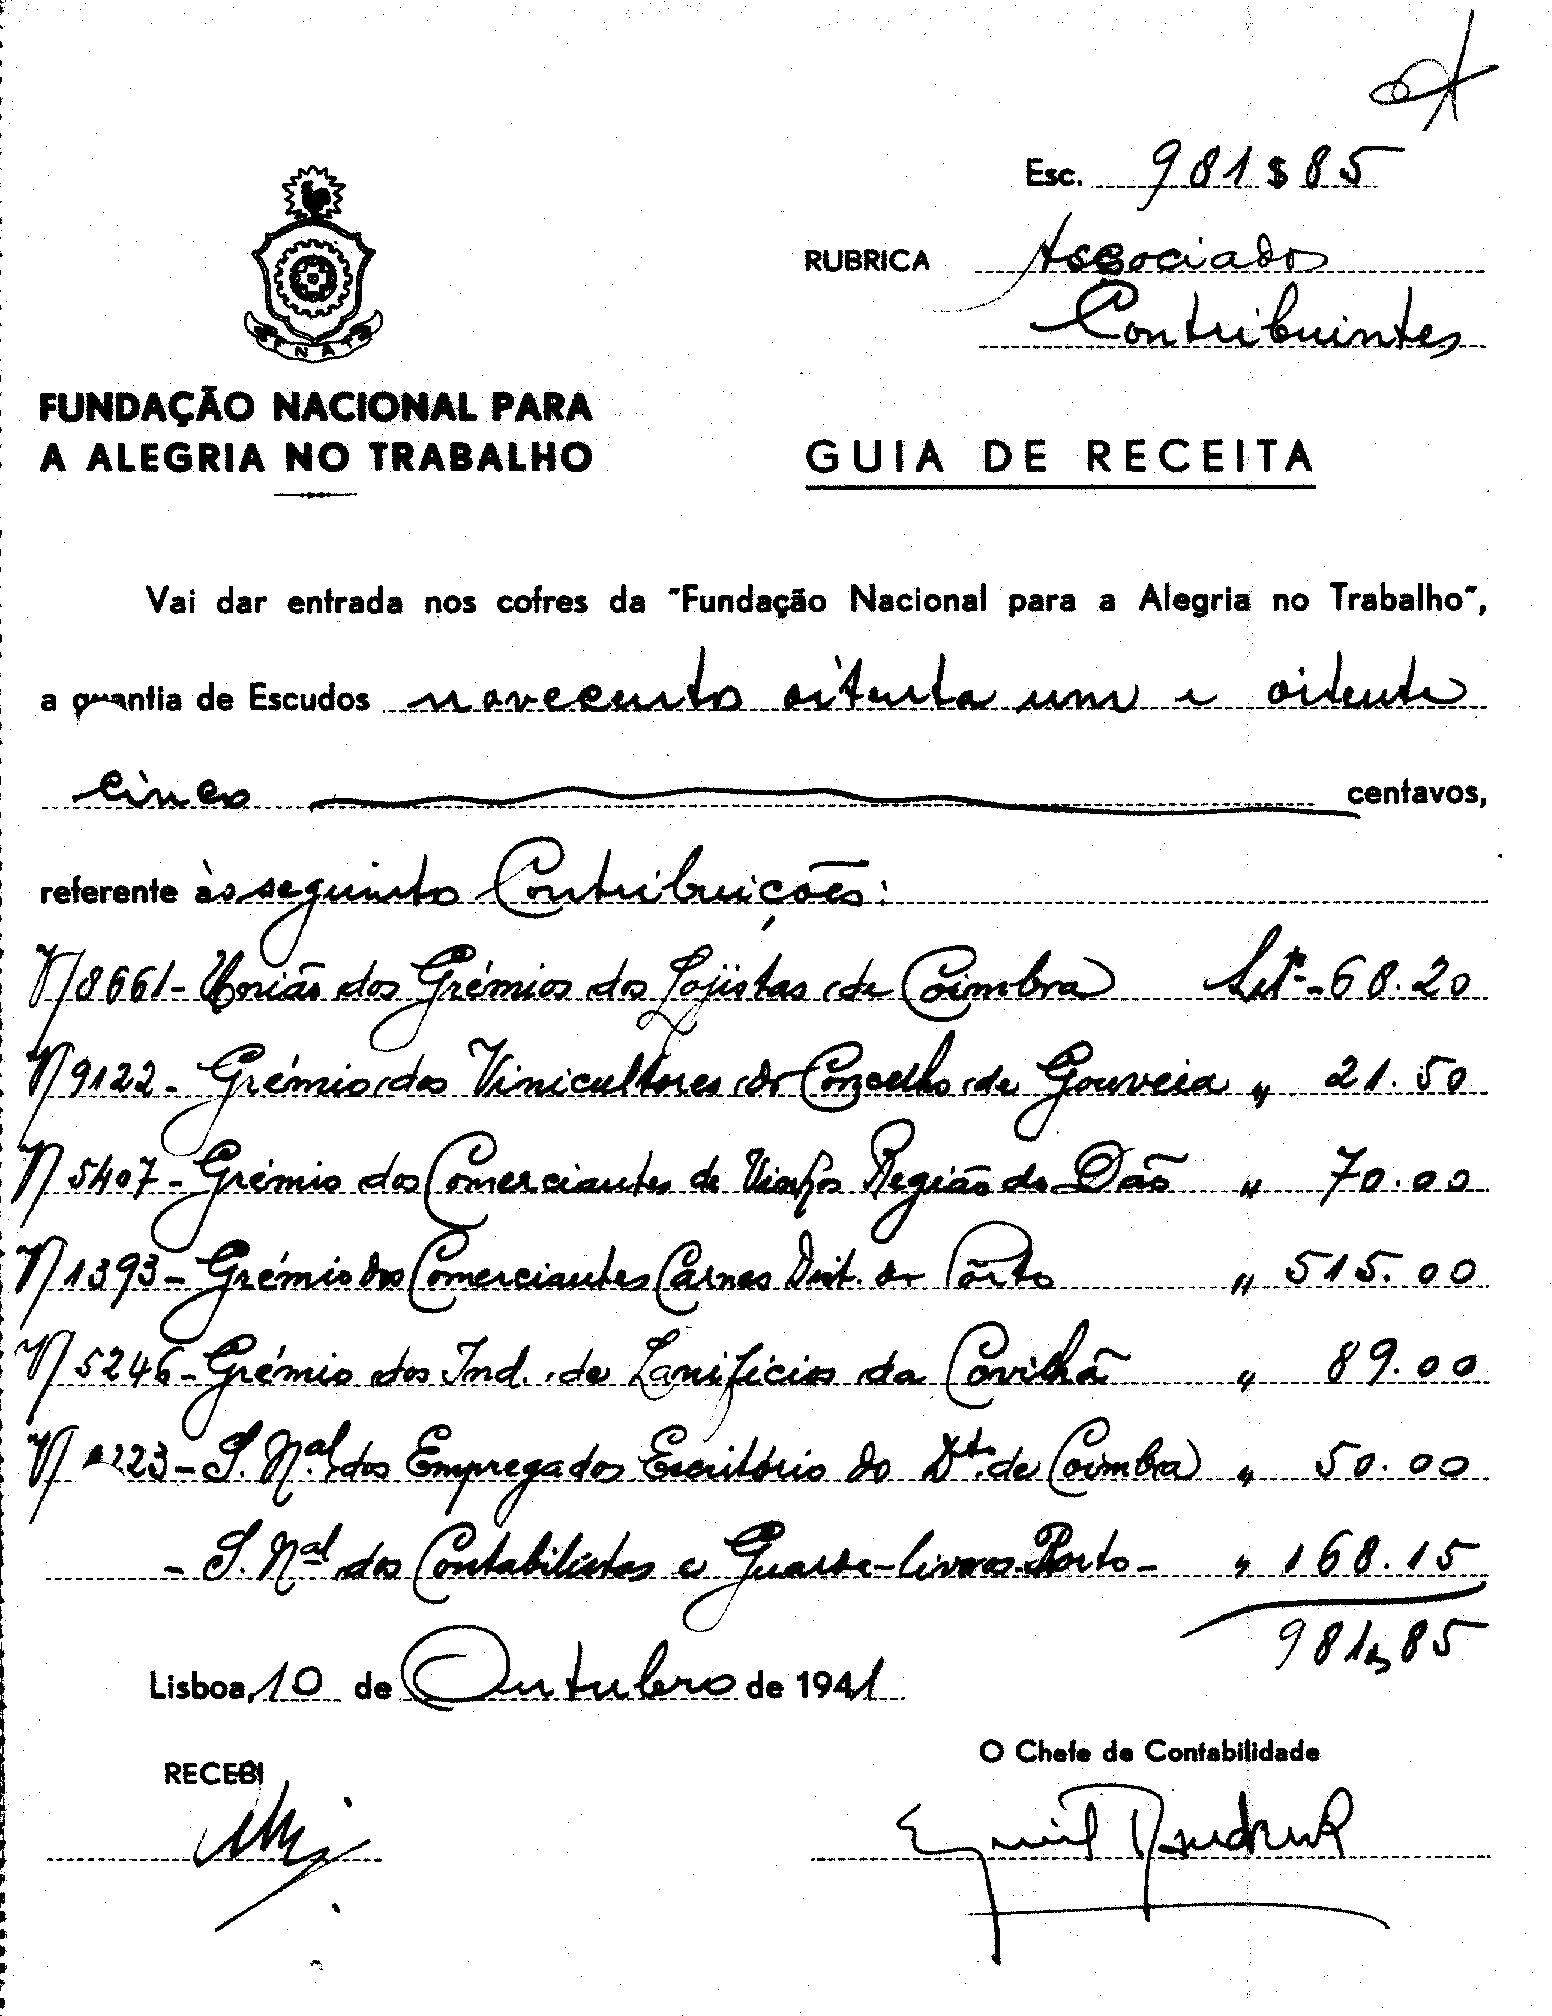 Esc. 981$85
RUBRICA Associados
Contribuintes
FNAT
FUNDAÇÃO NACIONAL PARA
A ALEGRIA NO TRABALHO
GUIA DE RECEITA
Vai dar entrada nos cofres da "Fundação Nacional para a Alegria no Trabalho",
a quantia de Escudos novecentos oitenta um e oitenta
cinco centavos,
referente às seguintes Contribuições:
N/8661- União dos Grémios dos Lojistas de Coimbra 68.20
N/9122- Grémio dos Vinicultores do Concelho de Gouveia " 21.50
N/5407- Grémio dos Comerciantes de Vinhos Região do Dão " 70.00
N/1393- Grémio dos Comerciantes Carnes Dist. do Pôrto " 515.00
N/5246- Grémio dos Ind. de Lanifícios da Covilhã " 89.00
N/ 223- S. N.al dos Empregados Escritório do Dto. de Coimbra " 50.00
- S. Nal dos Contabilistas e Guarda-livros Porto- " 168.15
981$85
Lisboa, 10 de Outubro de 1941
RECEBI
O Chefe da Contabilidade